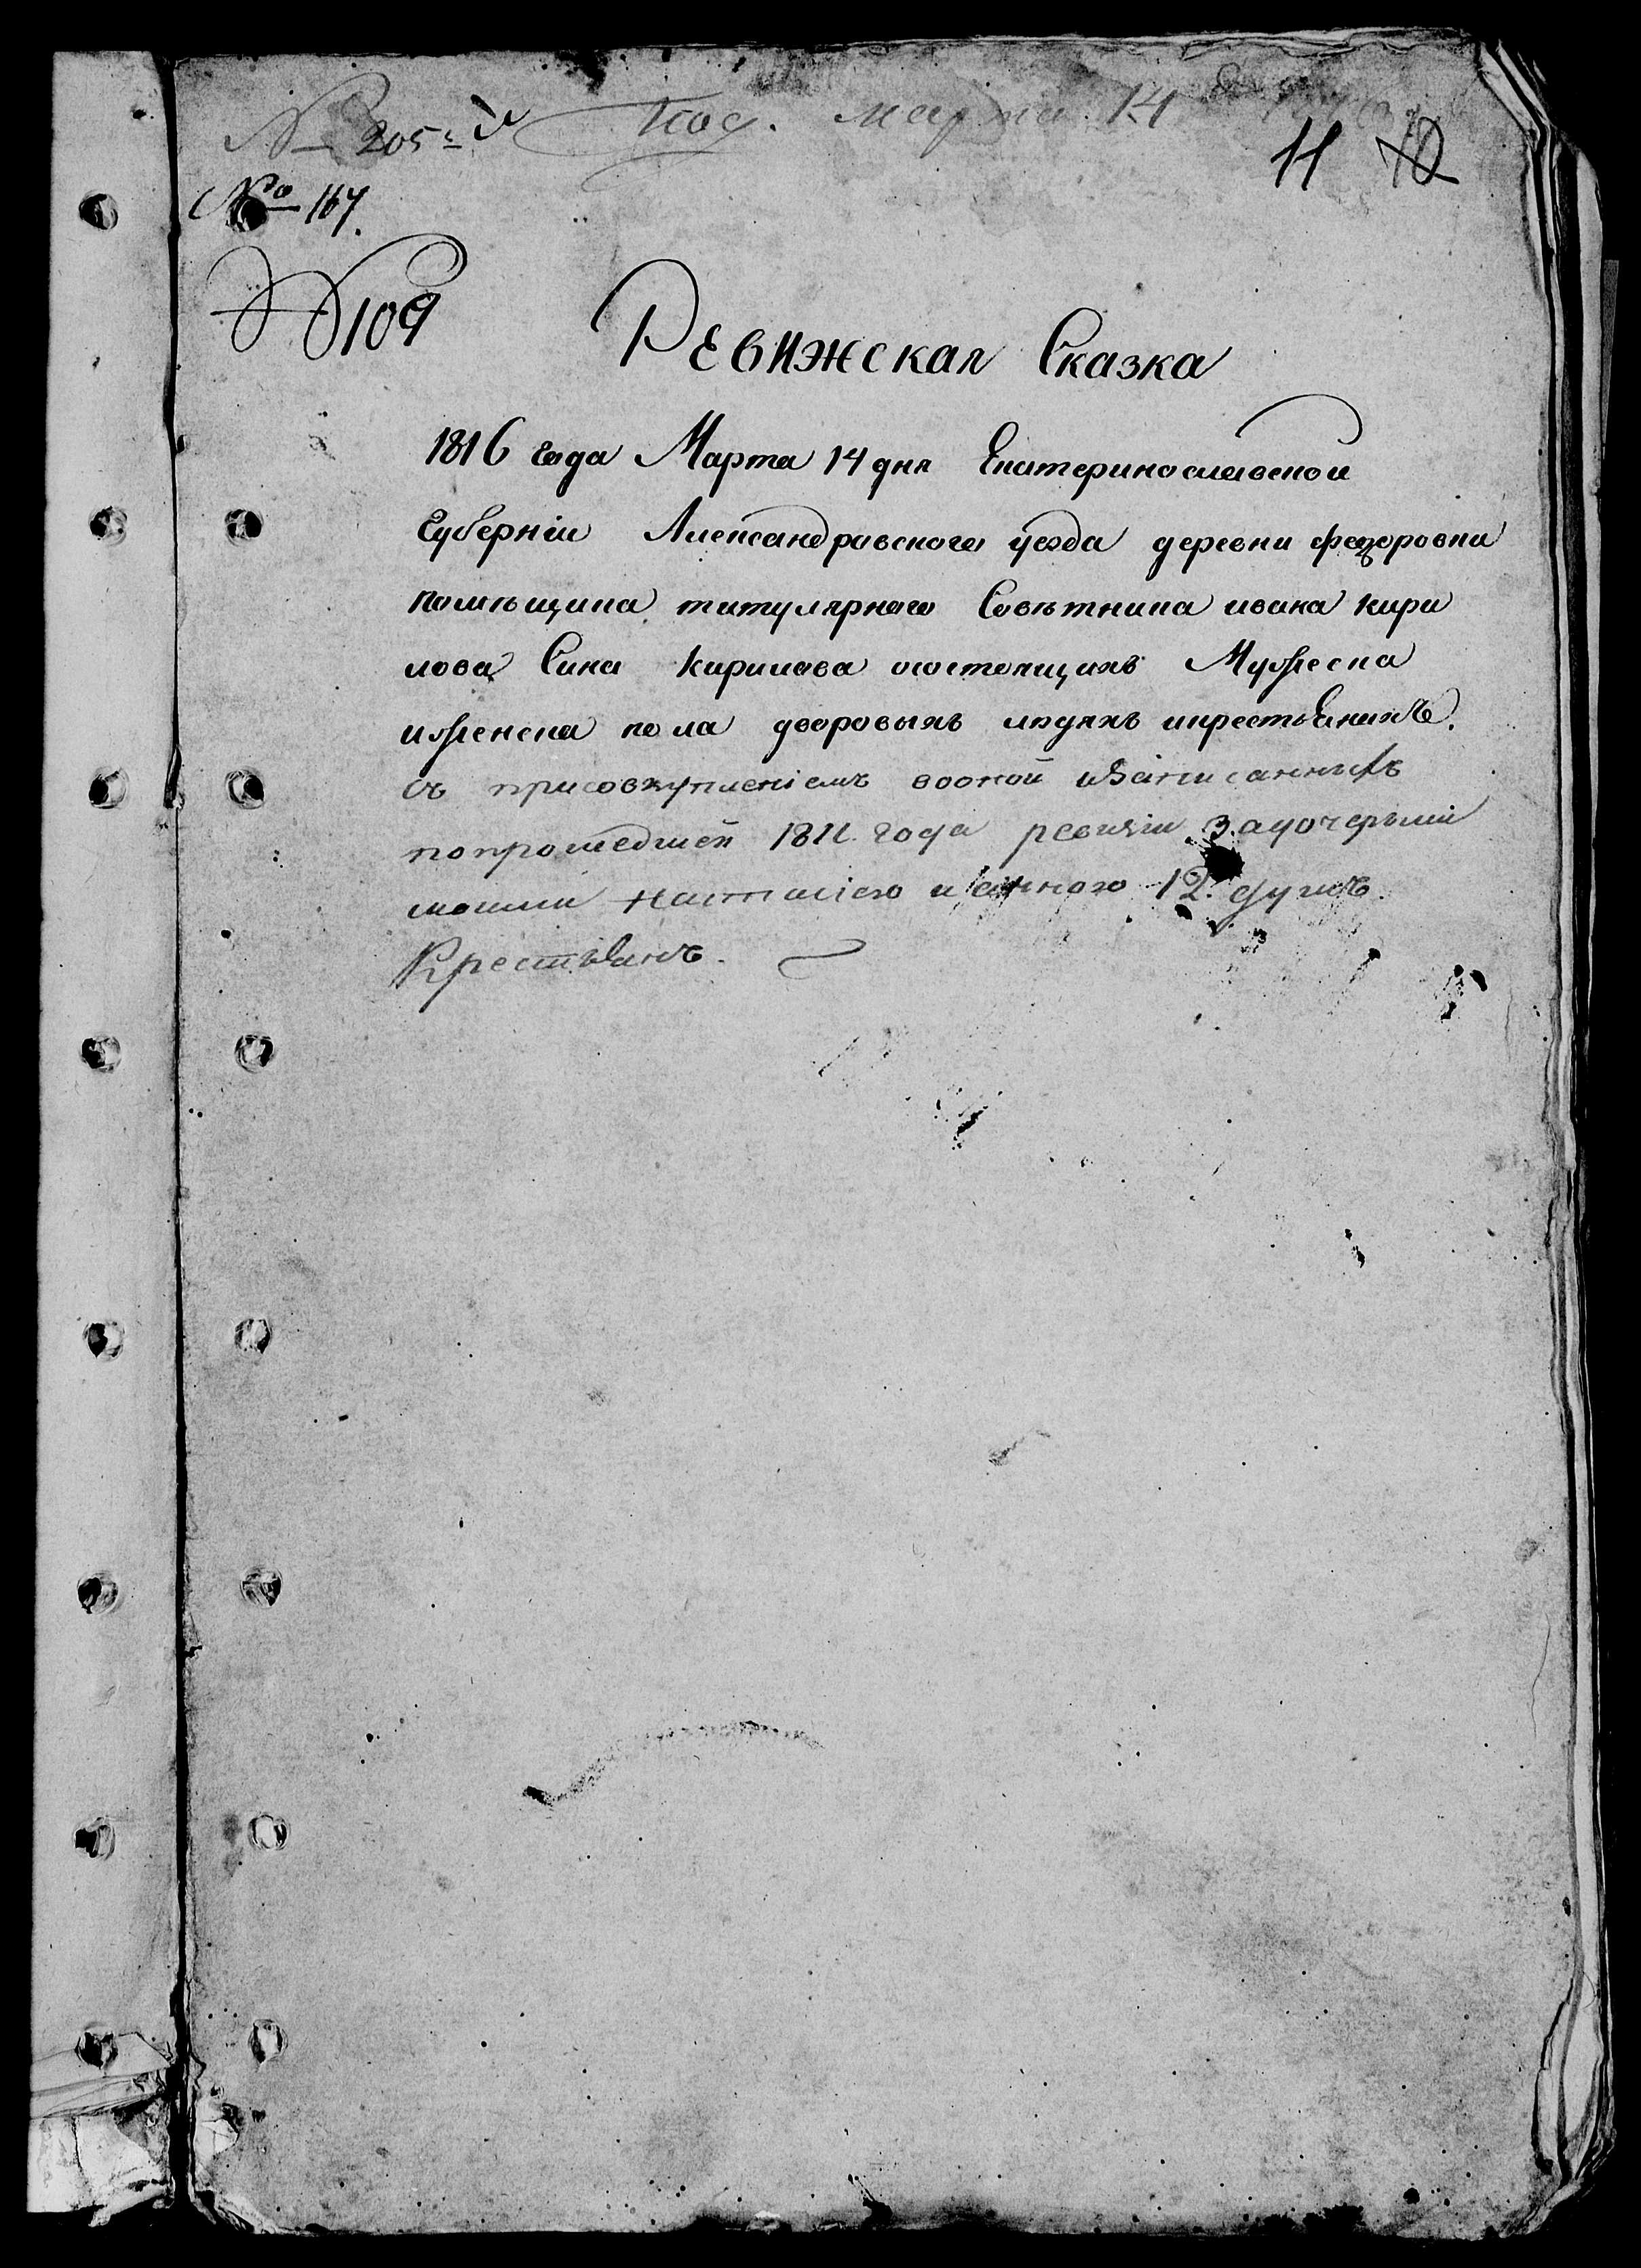 № 205й Под. марта 14
11 10
№ 167.
№ 109
Ревижская Сказка
1816 года Марта 14 дня Екатеринославской
Губерніи Александровского уезда деревни федоровки
помѣщика титулярного Советника ивана кири
лова Сина Кирилова осостоящихъ Мужеска
иженска пола дворовыхъ людяхъ икрестьянахъ.
съ присовкупленіемъ вооной изаписанныхъ
попрошедшей 1811. года ревизіи задочерью
Насталіею 12. душъ.
Крестьянъ.